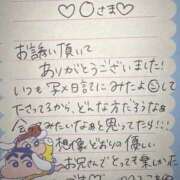 ♡〇さま♡
お誘い頂いて
ありがとうございました!
いつも写メ日記にみたよ😊して
下さってるから、どんな方だろうなぁ
会ってみたいなぁと思ってたら!!!
想像どおりの優しい
お兄さんでとっても楽しかった